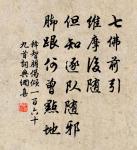 七佛前引
維摩後隨
但知逐隊隨邪
腳跟何曾點地
釋智朋偈傾一百六十
九首詞典網喜